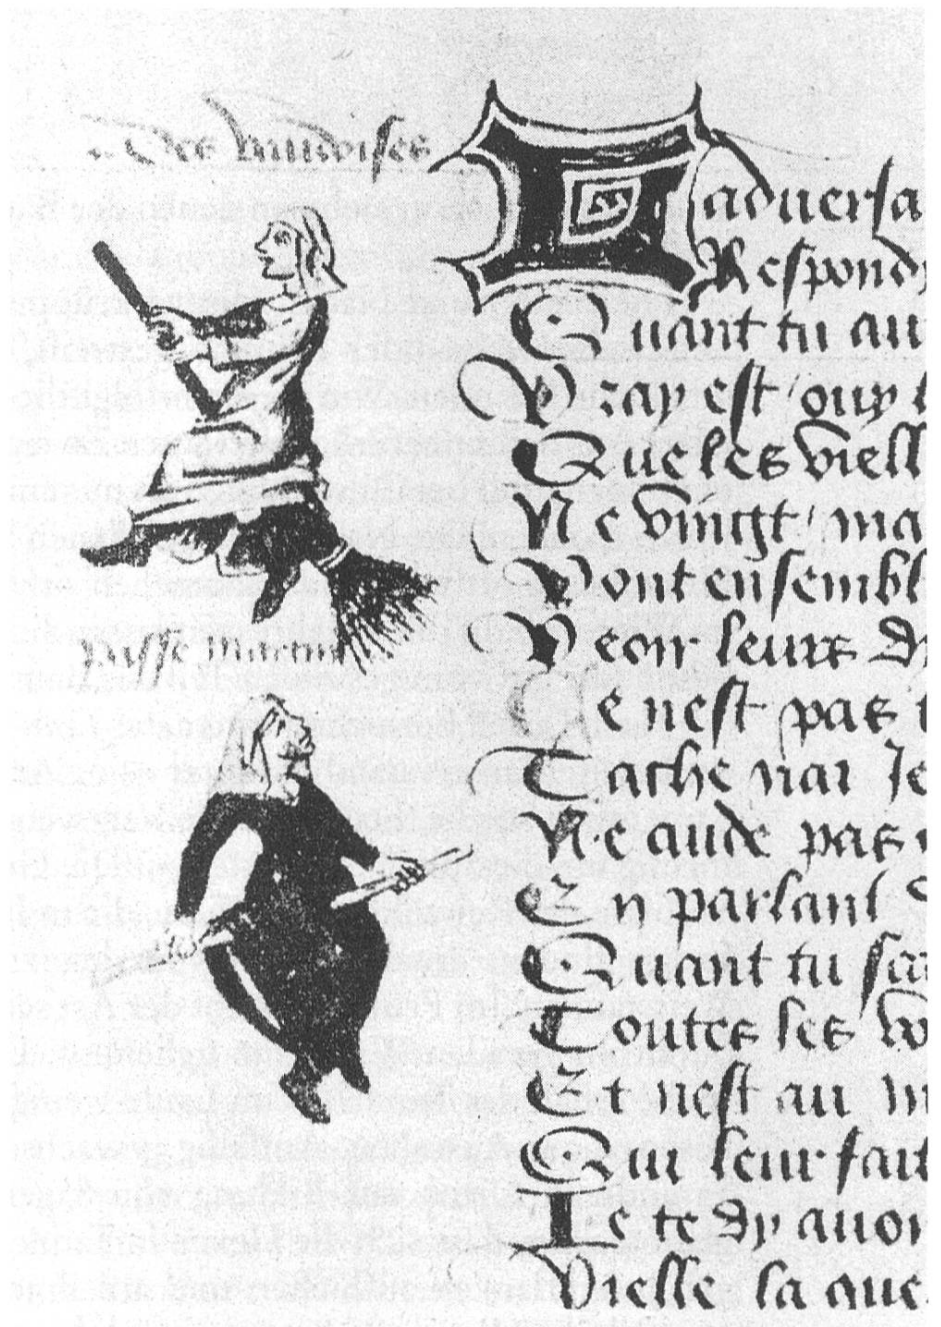 Des vaudoises
L adversa
Respond
Quant tu au
Vray est ouy t
Que les viell
Ne vingt ma
Vont ensembl
Passe Martin
Veoir leurs d
Ce nest pas
Tache nai Je
Ne aude pas
En parlant
Quant tu sca
Toutes les vo
Et nest au
Qui leur fait
Je te dy avoir
Vielle la que